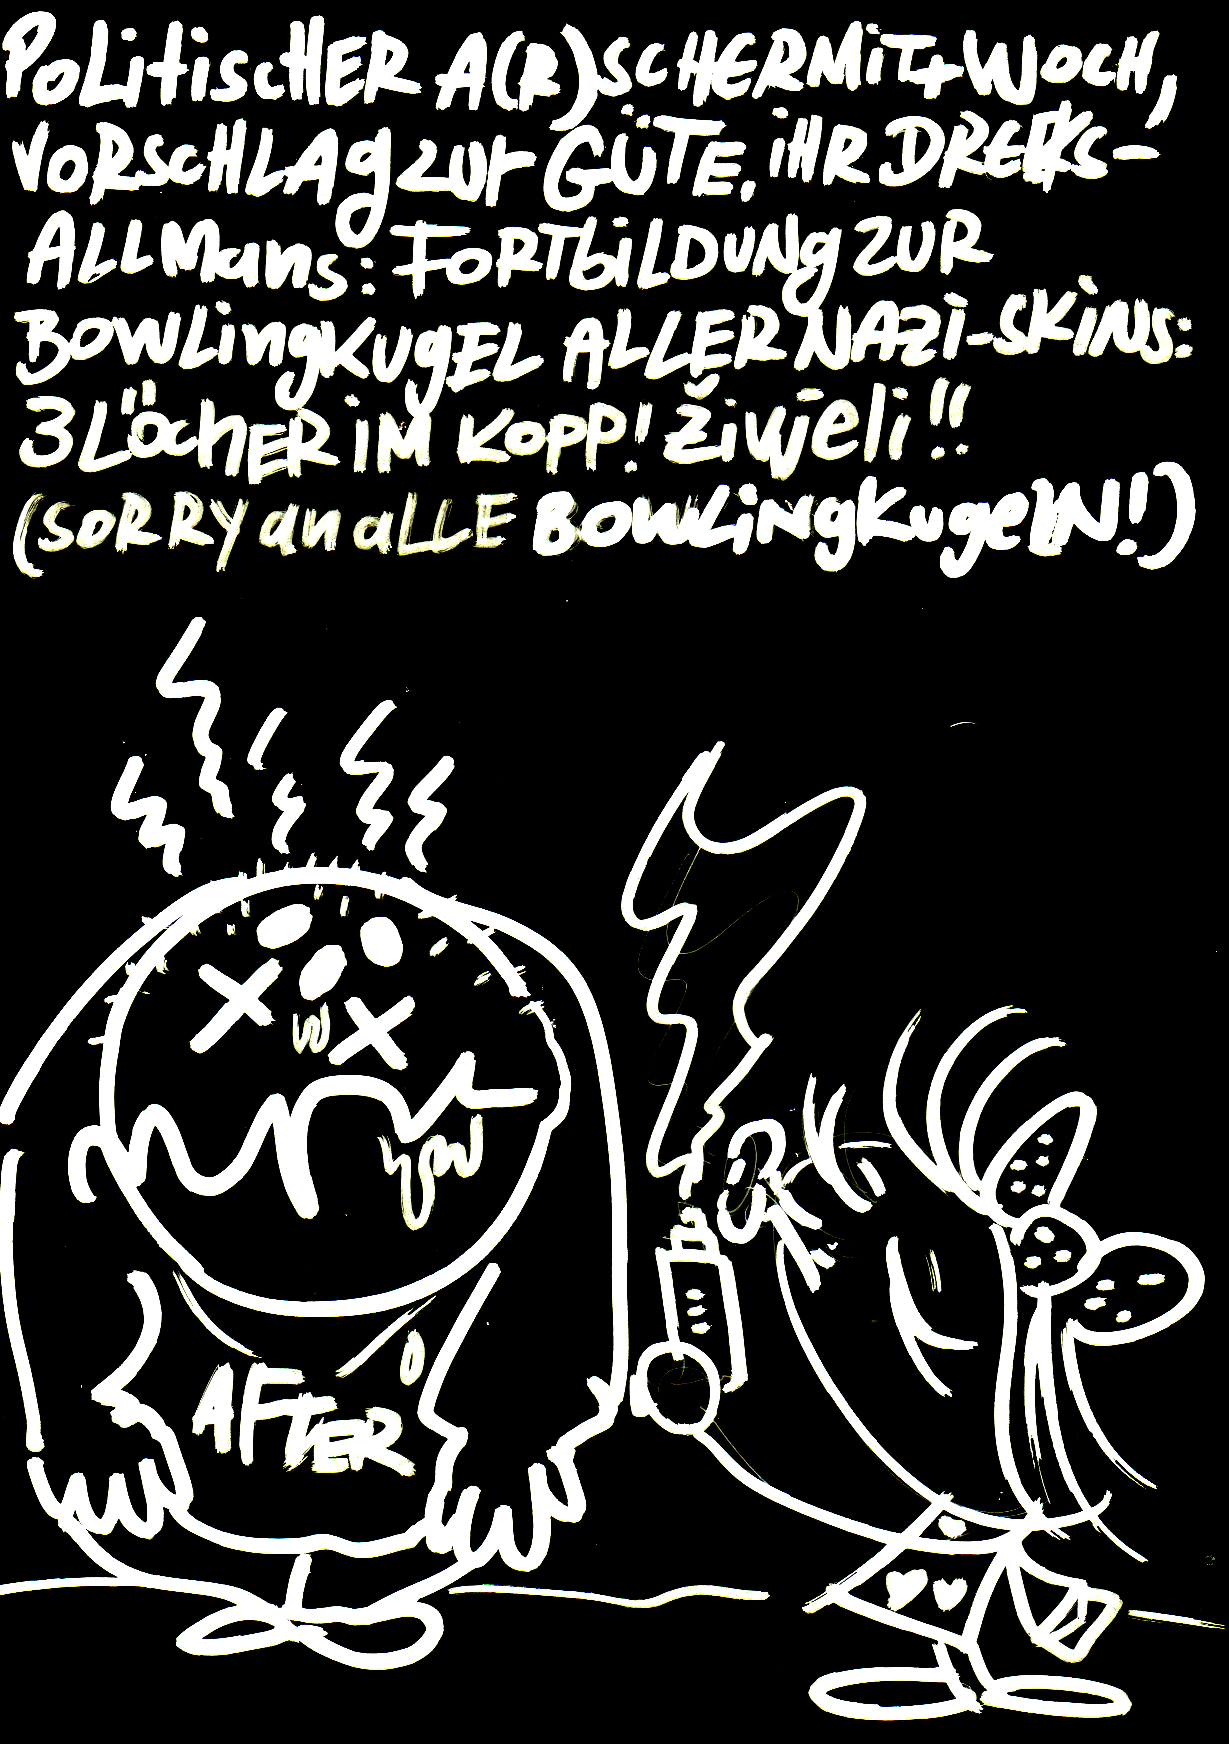 POLitiscHER A(R)scHERMiTTWOCH,
VORscHLAg zur GÜTE, iHR DRECKS-
ALLMans: FORTbiLDUNg ZUR
BOWLingKUgEL ALLER NAZi-SKiNS:
3 LöcHER iM KOPP! živjeli!!
(SORRY an aLLE BOWLiNgKugelN!)
AFTER